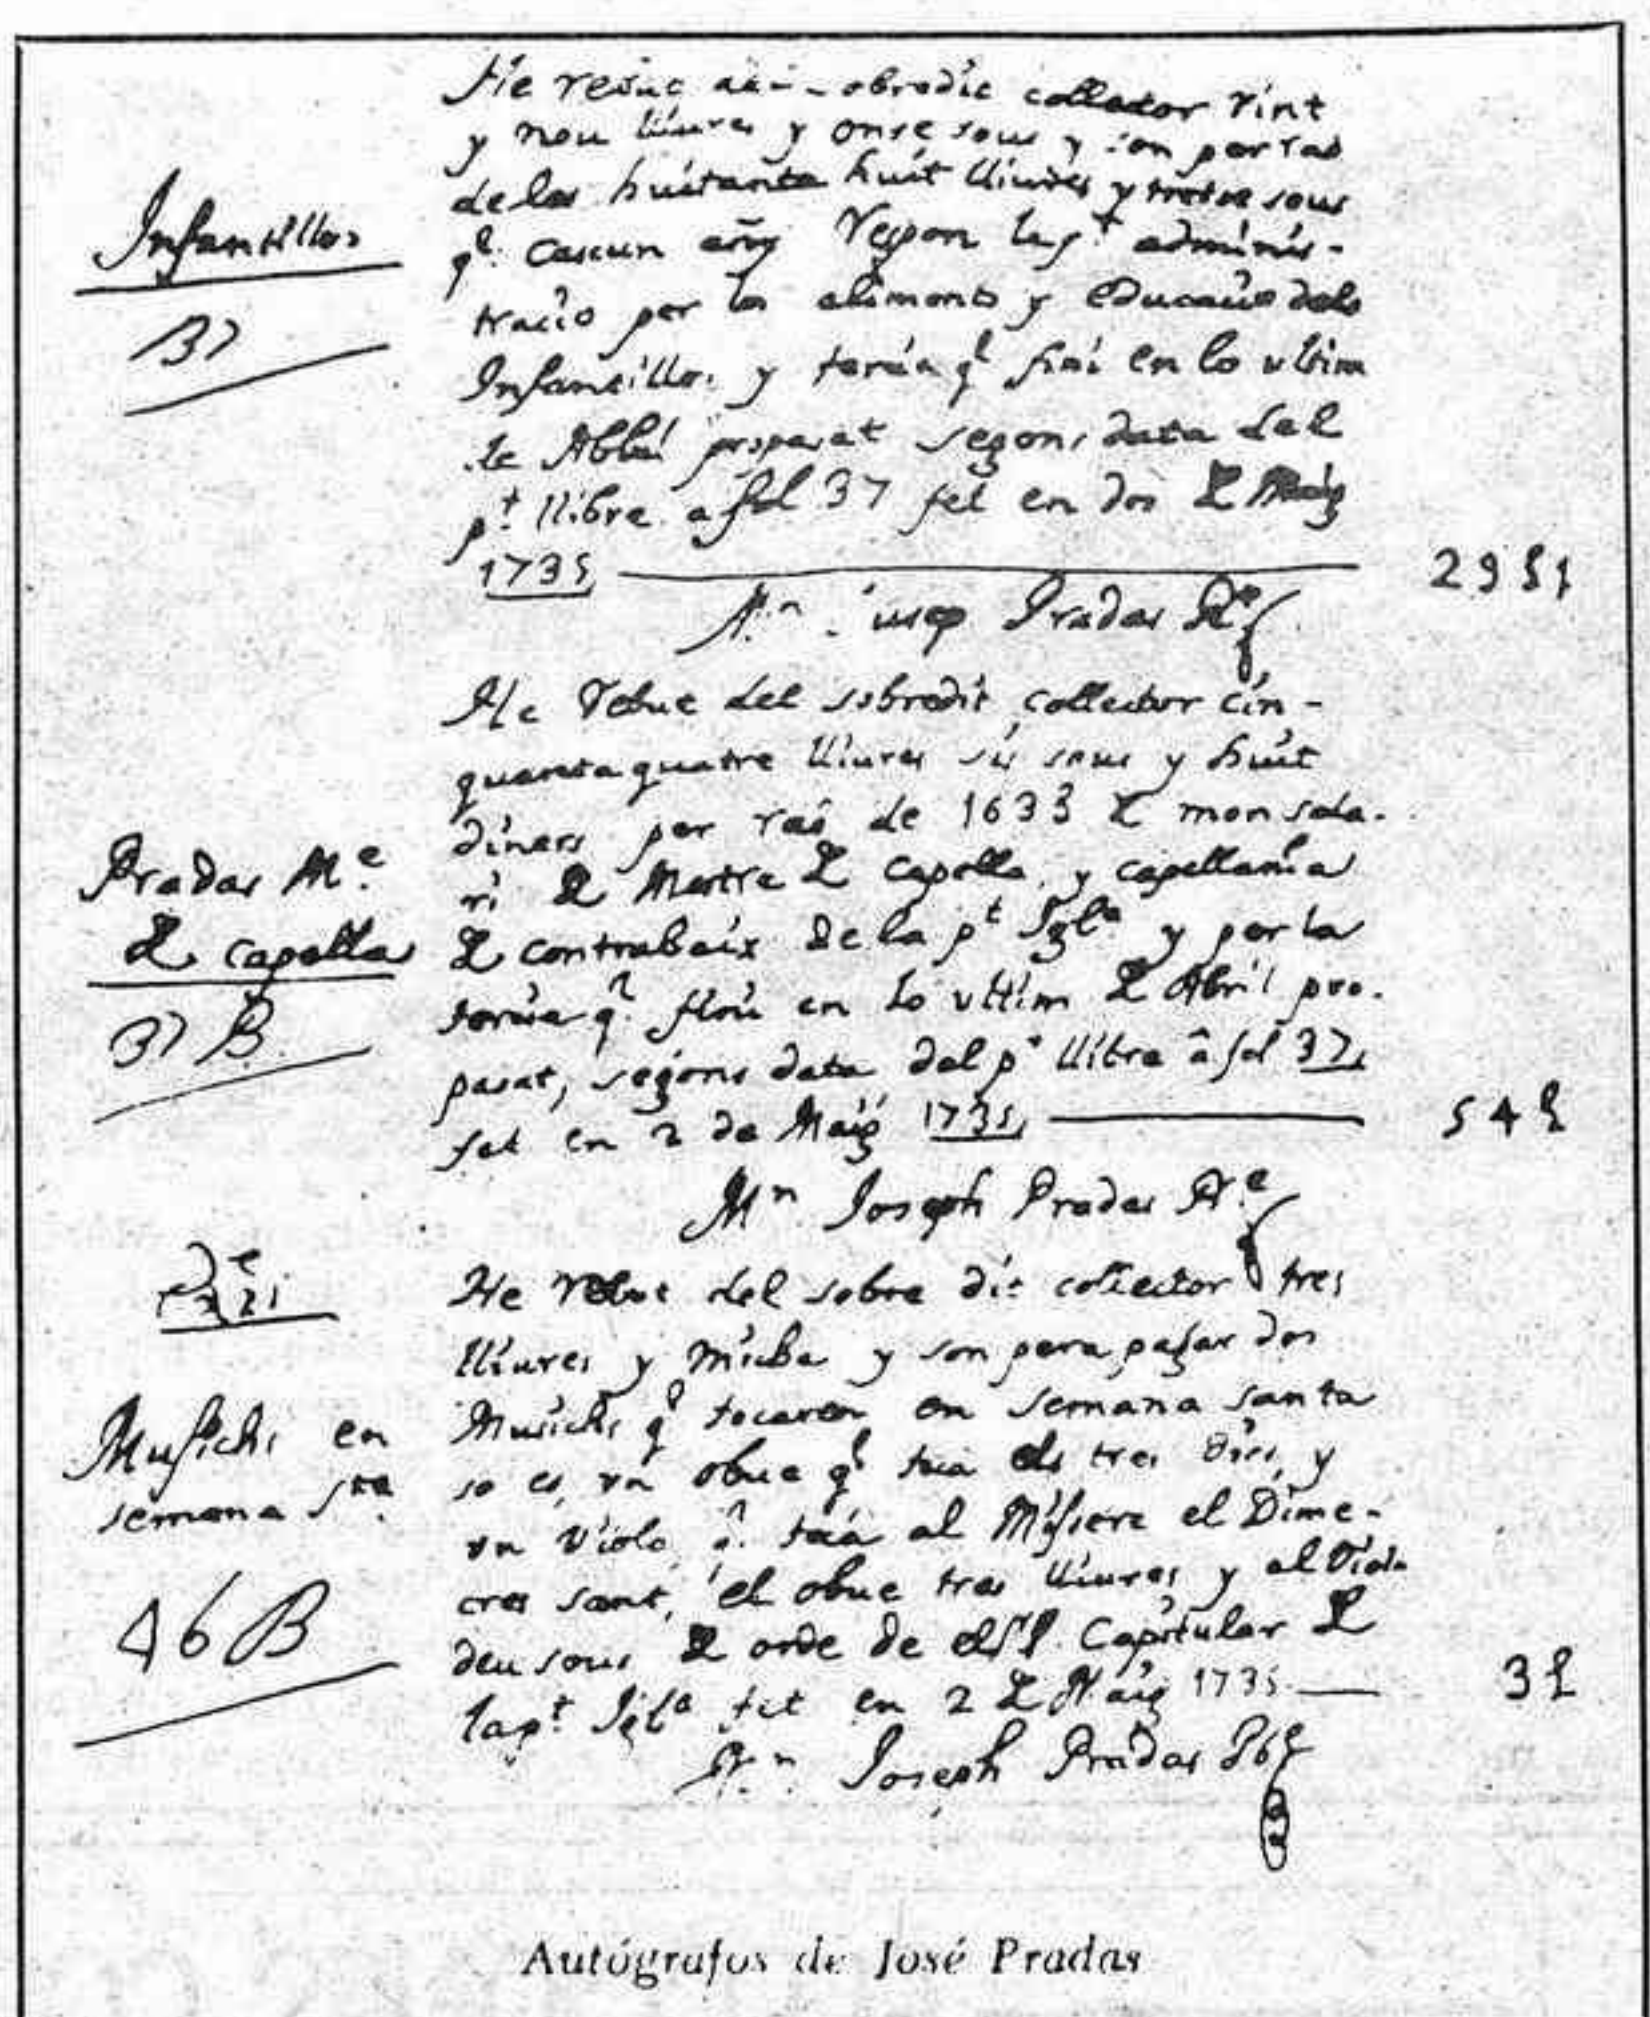 He rebut del sobredit collector vint
y nou lliures y onse sous y son per rao
de les huitanta huit lliures y tretse sous
q.e cascun añy respon la p.t adminis-
tracio per los aliments y educacio dels
Infantillos
37
Infantillos y tercia q.e fini en lo ultim
de Abril propasat segons data del
p.t llibre a fol 37 fet en dos de Maig
1735
29 £ 1
M.n Jusep Pradas
He rebut del sobredit collector cin-
quanta quatre lliures sis sous y huit
diners per rao de 163 £ de mon sala-
ri de Mestre de Capella, y capellania
de contrabaix de la p.t Igl.a y per la
tercia q.e finí en lo ultim de Abril pro-
pasat, segons data del p.t llibre â fol 37,
fet en 2 de Maig 1735,
54 £
Pradas M.e
de capella
37 B
M.n Joseph Pradas
He rebut del sobre dit collector tres
lliures y micha y son pera pagar dos
Musichs q.e tocaren en semana santa
so es, un obue q.e toca els tres dies, y
un violo q.e toca al Miserere el Dime-
cres sant, el obue tres lliures y al violo
deu sous de orde de el Capitular de
la p.t Igl.a fet en 2 de Maig 1735
3 £
Musichs en
semana S.ta
46 B
M.n Joseph Pradas
Autógrafos de José Pradas